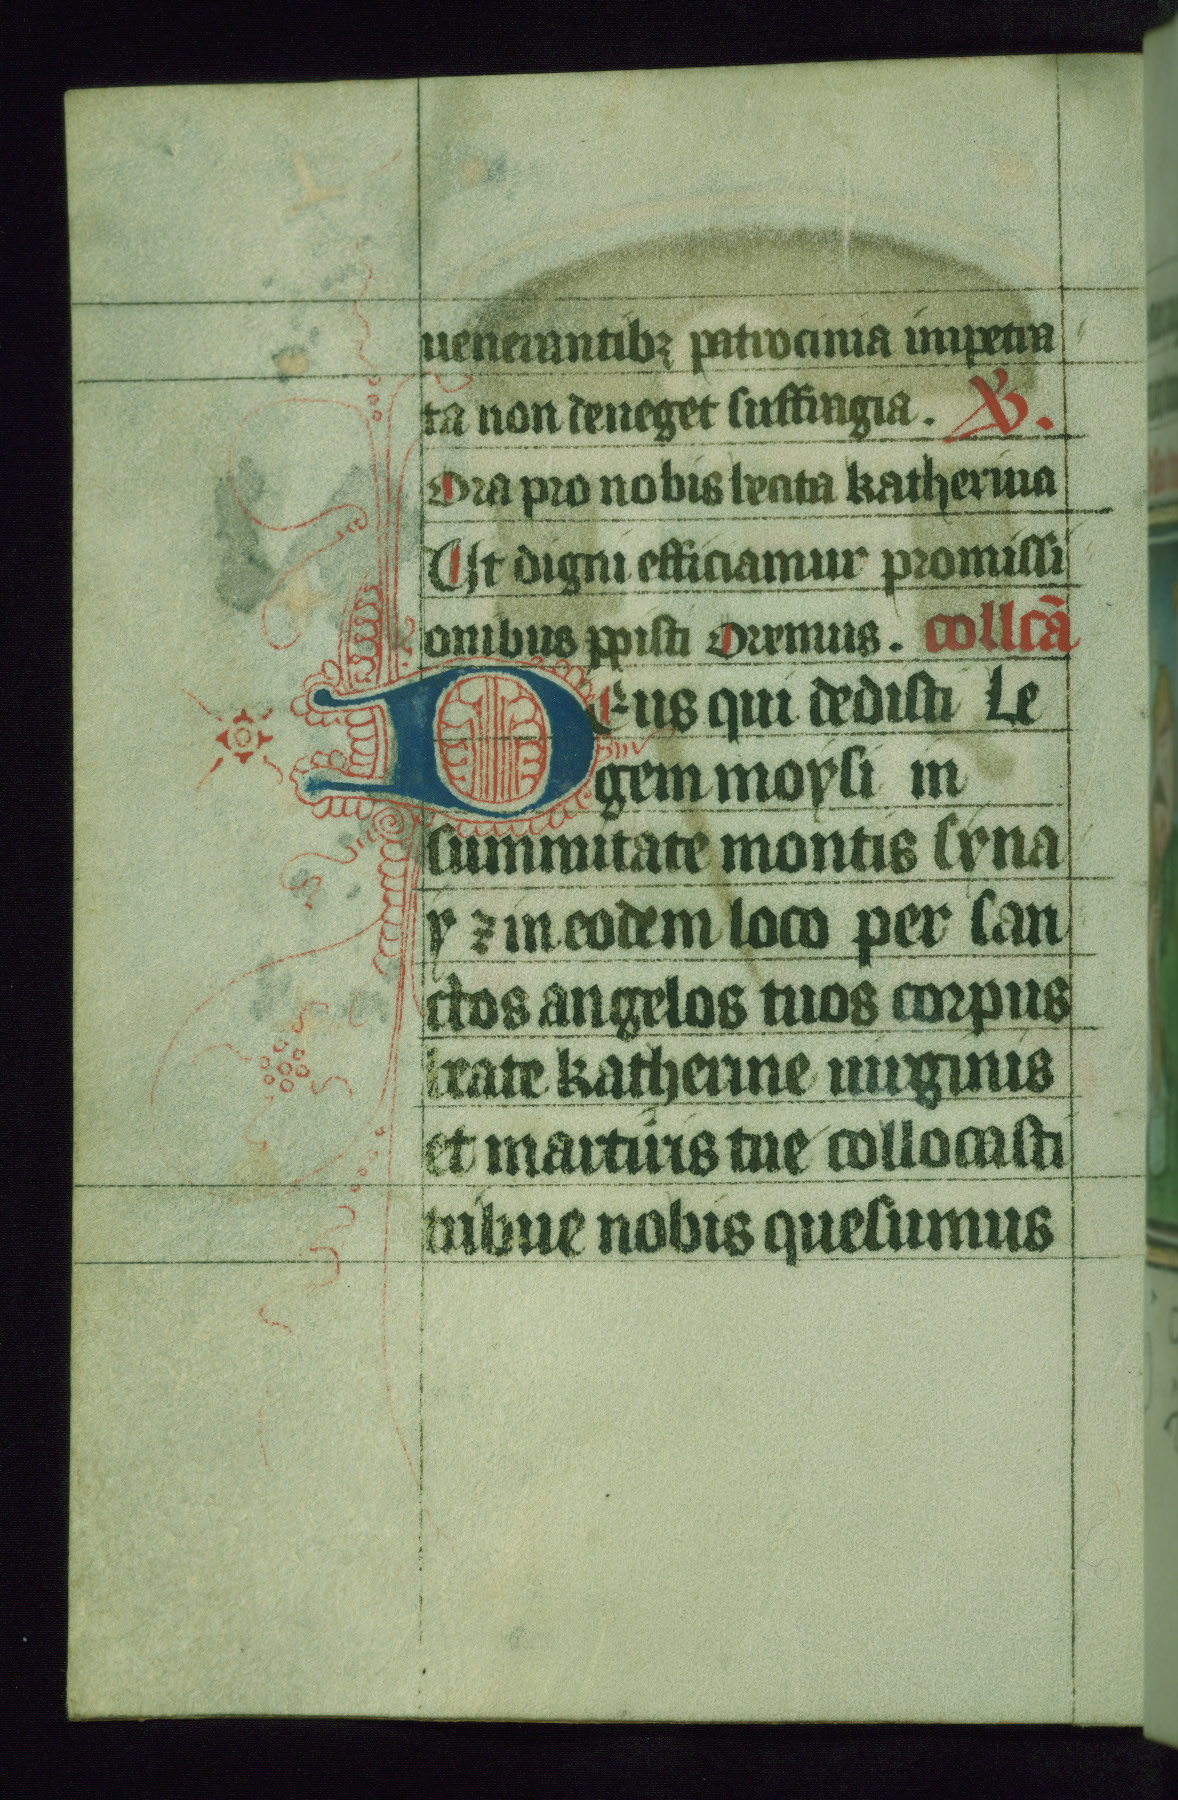 uenerantibꝫ patrocinia impetra
ta non deneget suffragia. ℣.
Ora pro nobis beata katherina
Ut digni efficiamur promissi
onibus xpisti Oremus. collcā
Deus qui dedisti Le
gem moysi in
summitate montis syna
y ⁊ in eodem loco per san
ctos angelos tuos corpus
beate katherine uirginis
et martiris tue collocasti
tribue nobis quesumus